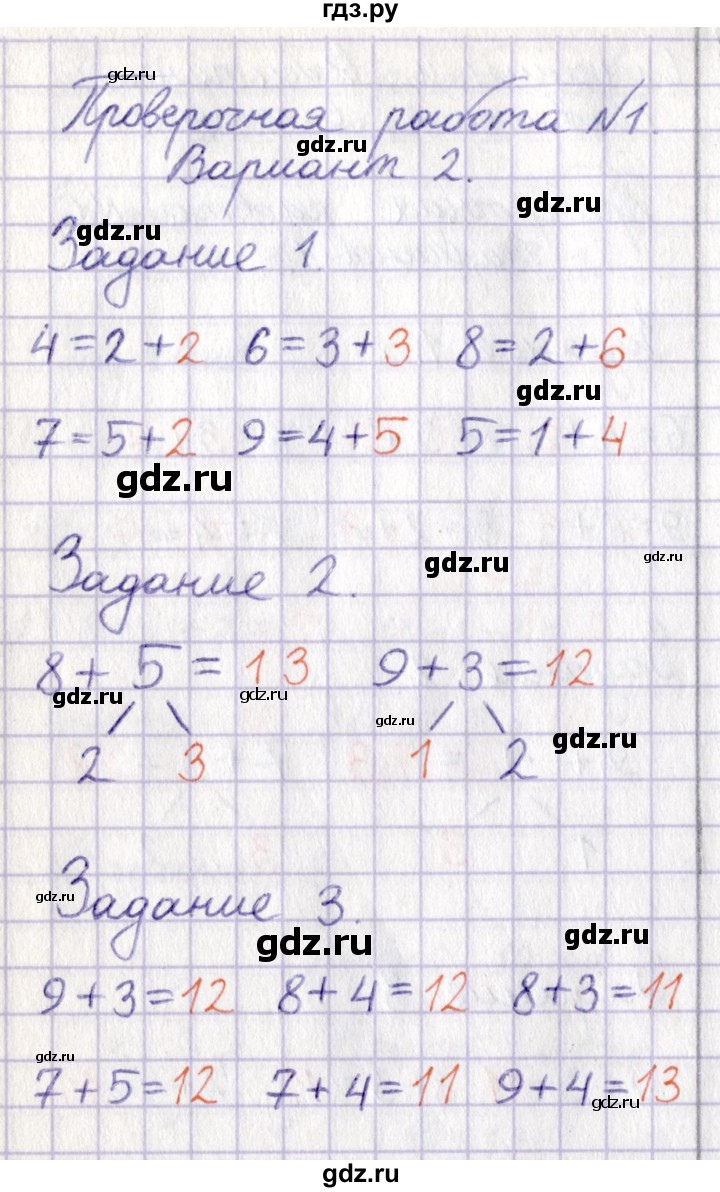 гдз.ру
gdz.ru
Проверочная работа №1.
gdz.ru
Вариант 2.
gdz.ru
gdz.ru
Задание 1.
4=2+2 6=3+3 8=2+6
gdz.ru
7=5+2 9=4+5 5=1+4
gdz.ru
gdz.ru
gdz.ru
Задание 2.
8+5=13 9+3=12
gdz.ru gdz.ru
gdz.ru
gdz.ru
2 3 1 2
gdz.ru
Задание 3.
gdz.ru
gdz.ru
9+3=12 8+4=12 8+3=11
gdz.ru
7+5=12 7+4=11 9+4=13
gdz.ru
gdz.ru